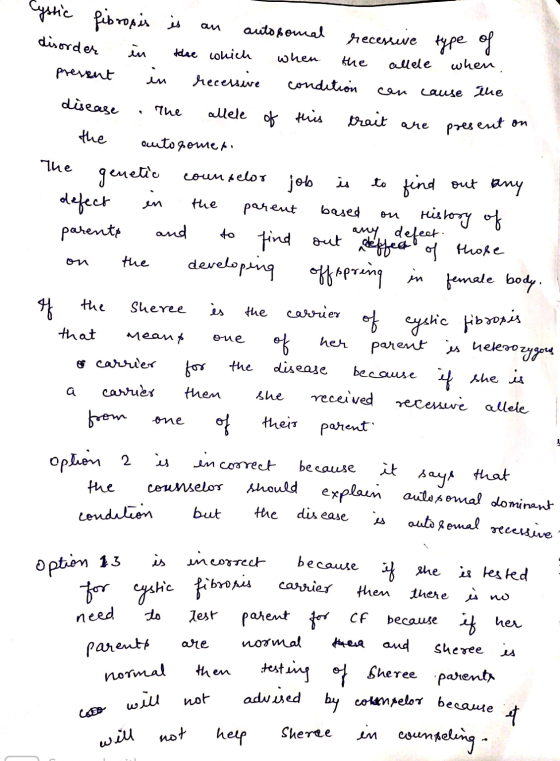 Cystic fibrosis is an autosomal recessive type of
disorder in which when the allele when
present in recessive condition can cause the
disease. The allele of this trait are present on
the autosomes.
The genetic counselor job is to find out any
defect in the parent based on History of
parents and to find out any defect of those
on the developing offspring in female body.
If the Sheree is the carrier of cystic fibrosis
that means one of her parent is heterozygous
carrier for the disease because if she is
a carrier then she received recessive allele
from one of their parent.
Option 2 is incorrect because it says that
the counselor should explain autosomal dominant
condition but the disease is autosomal recessive
Option 3 is incorrect because if she is tested
for cystic fibrosis carrier then there is no
need to Test parent for CF because if her
parents are normal and Sheree is
normal then testing of Sheree parents
will not advised by counselor because it
will not help Sheree in counseling.